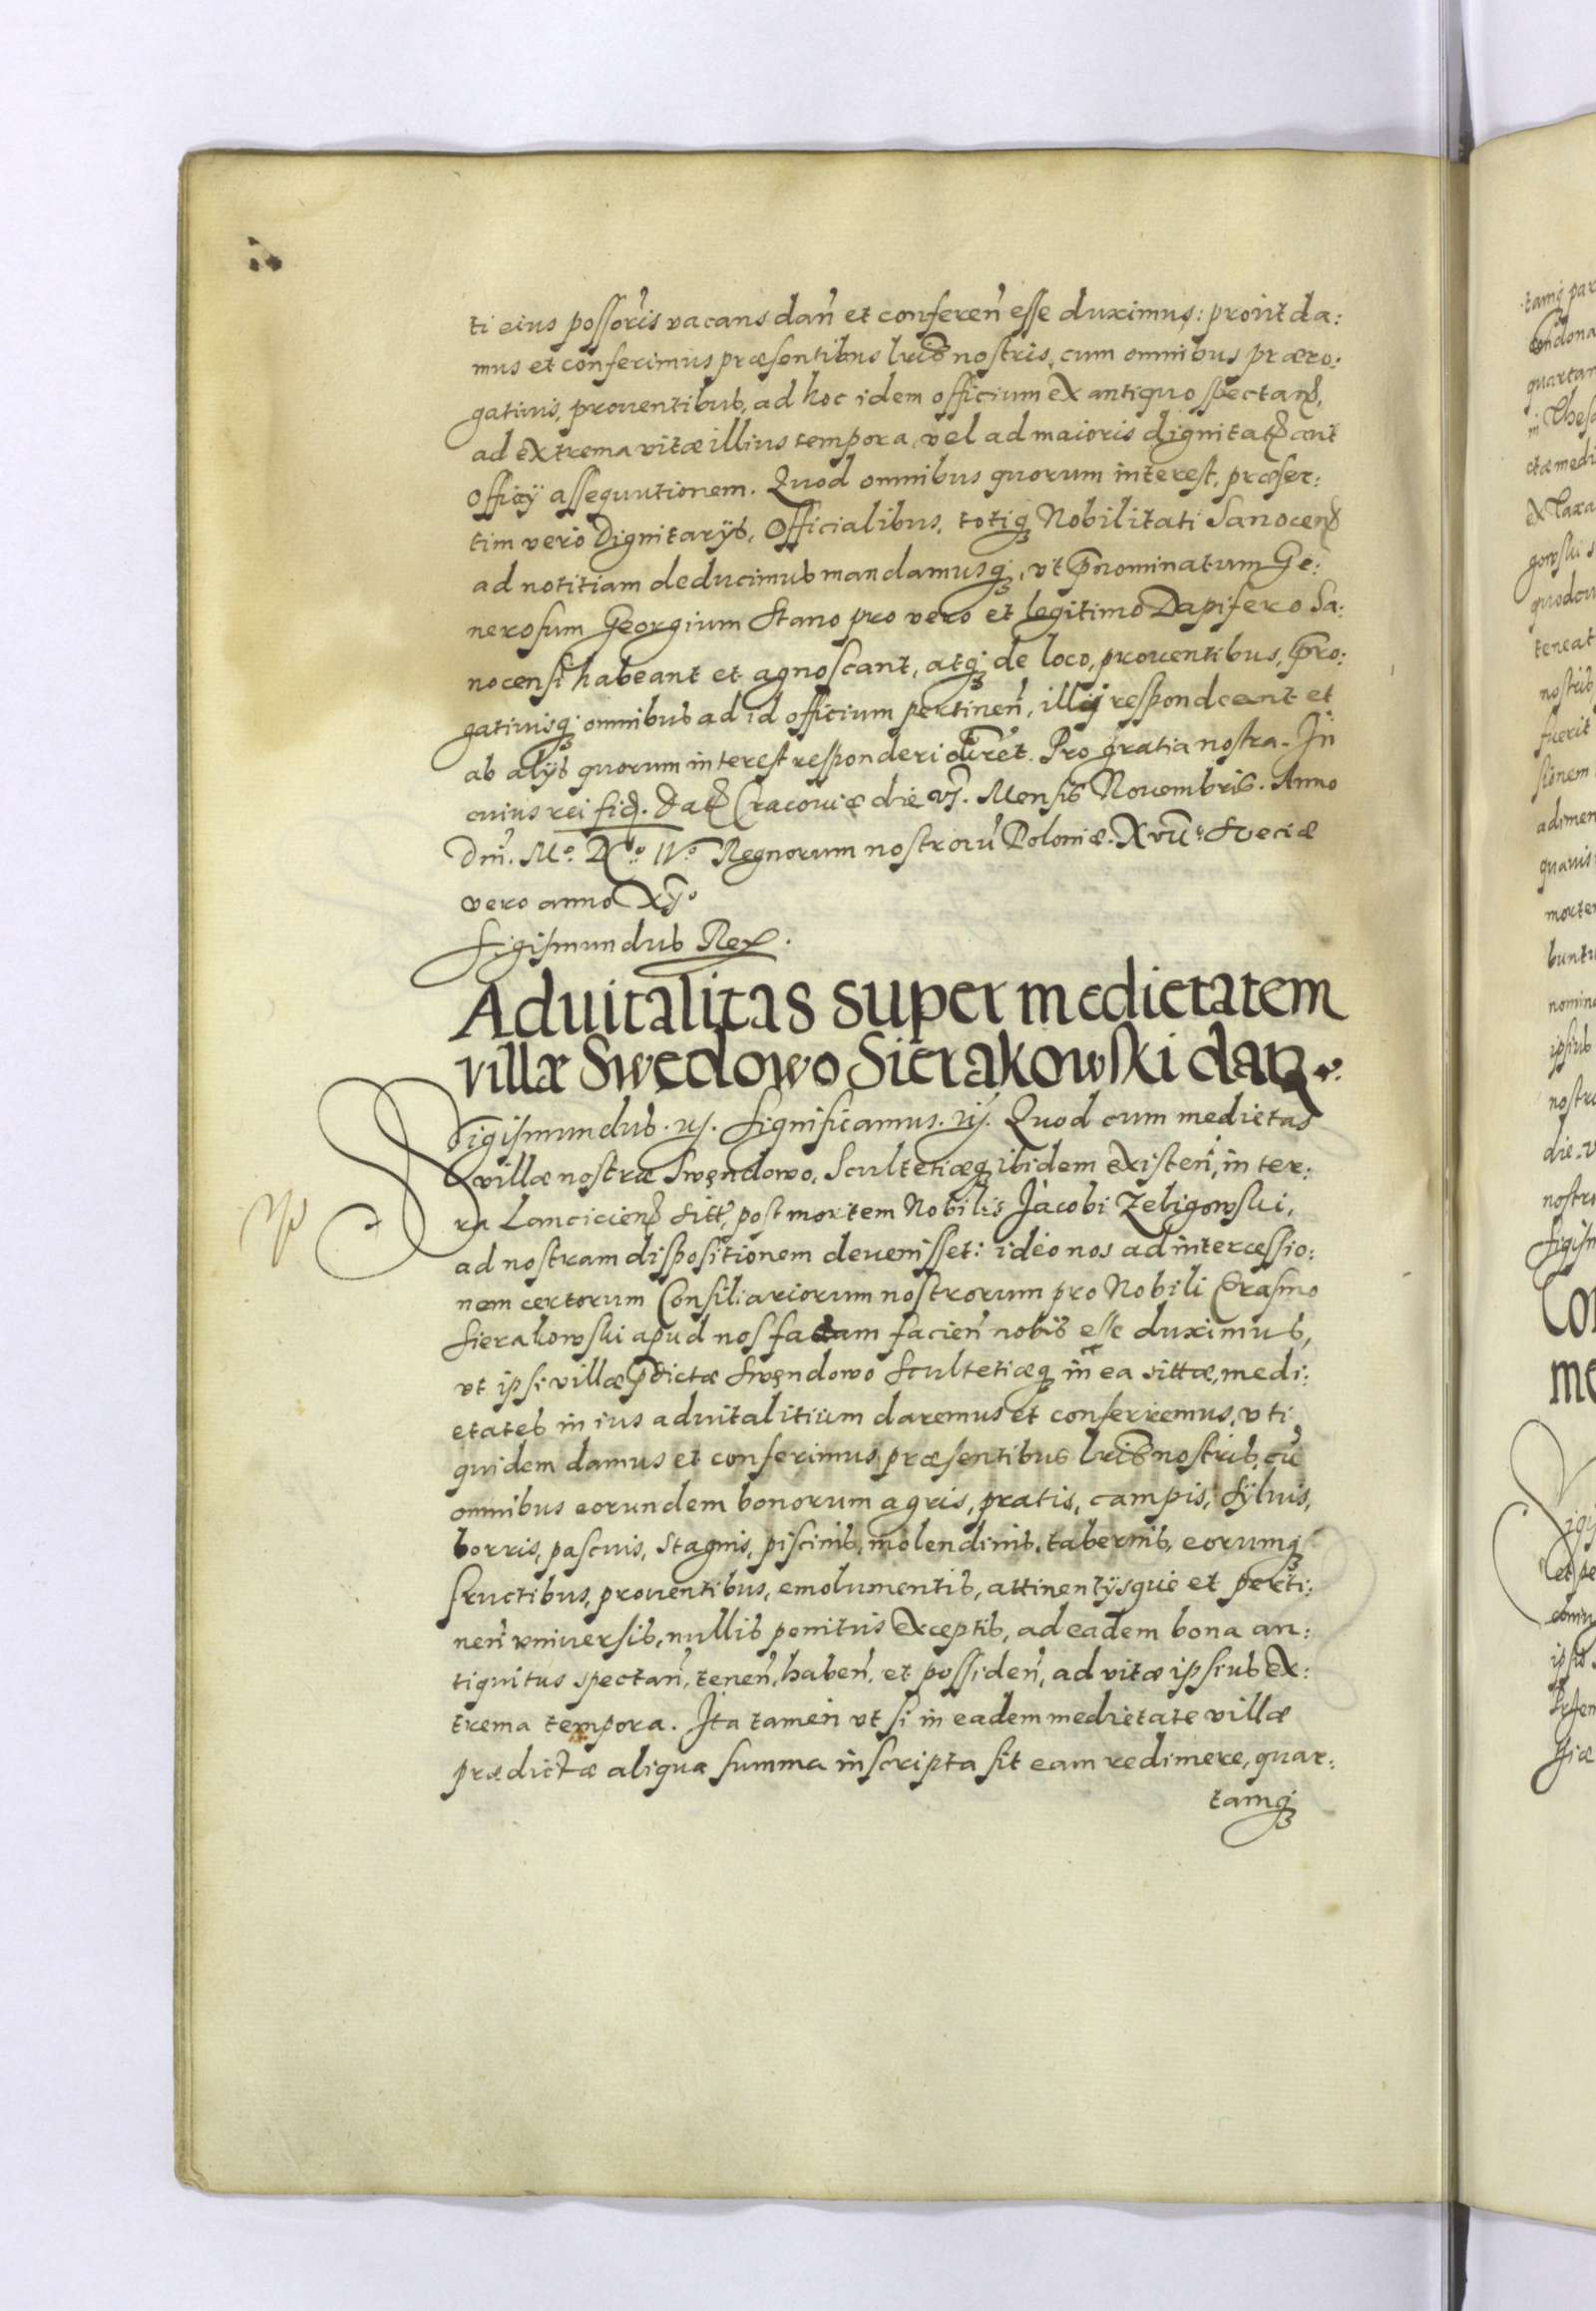 ti eius possoris vacans dan et conferen esse duximus: prout da:
mus et conferimus præsentibus lris nostris, cum omnibus præro:
gatiuis, prouentibus, ad hoc idem officium ex antiquo spectan,
ad extrema vitæ illius tempora, vel ad maioris dignitat aut
Officÿ assequutionem. Quod omnibus quorum interest, præser:
tim vero Dignitarÿs, Officialibus, totiq Nobilitati Sanocen
ad notitiam deducimus mandamusq, vt prnominatum Ge:
nerosum Georgium Stano pro vero et legitimo Dapifero Sa:
nocensi habeant et agnoscant, atq de loco, prouentibus, prro:
gatiuisq omnibus ad id officium pertinen, illij respondeant et
ab alÿs quorum interest responderi Pro gratia nostra. In
cuius rei fid. Dat Cracouiæ die vj. Mensis Nouembris. Anno
Dni. Mo. Do. IVo Regnorum nostrorũ Poloniæ. Sveciæ
vero anno
Sigismundus Rex.
Aduitalitas super medietatem
villæ Swędowo Sierakowski dat
Sigismundus. Significamus. Quod cum medietas
villæ nostræ Swędowo, Scultetiæq ibidem existen, in ter:
ra Lancicien sitt, post mortem Nobilis Jacobi Zeligowski,
ad nostram dispositionem deuenisset: ideo nos ad intercessio:
nem certorum Consiliariorum nostrorum pro Nobili Erasmo
Sierakowski apud nos factam facien nobis esse duximus,
vt ipsi villæ pdictæ Swęndowo Scultetiæq in ea sittæ, medi:
etates in ius aduitalitium daremus et conferremus, vti
quidem damus et conferimus præsentibus lris nostris, cũ
omnibus eorundem bonorum agris, pratis, campis, sÿluis,
borris, pascuis, stagnis, piscinis, molendinis, tabernis, eorumq
fructibus, prouentibus, emolumentis, attinentÿsque et perti:
nen vniuersis, nullis penitus exceptis, ad eadem bona an:
tiquitus spectan, tenen, haben, et possiden, ad vitæ ipsius ex:
trema tempora. Ita tamen vt si in eadem medietate villæ
prædictæ aliqua summa inscripta sit eam redimere, quar:
tamq